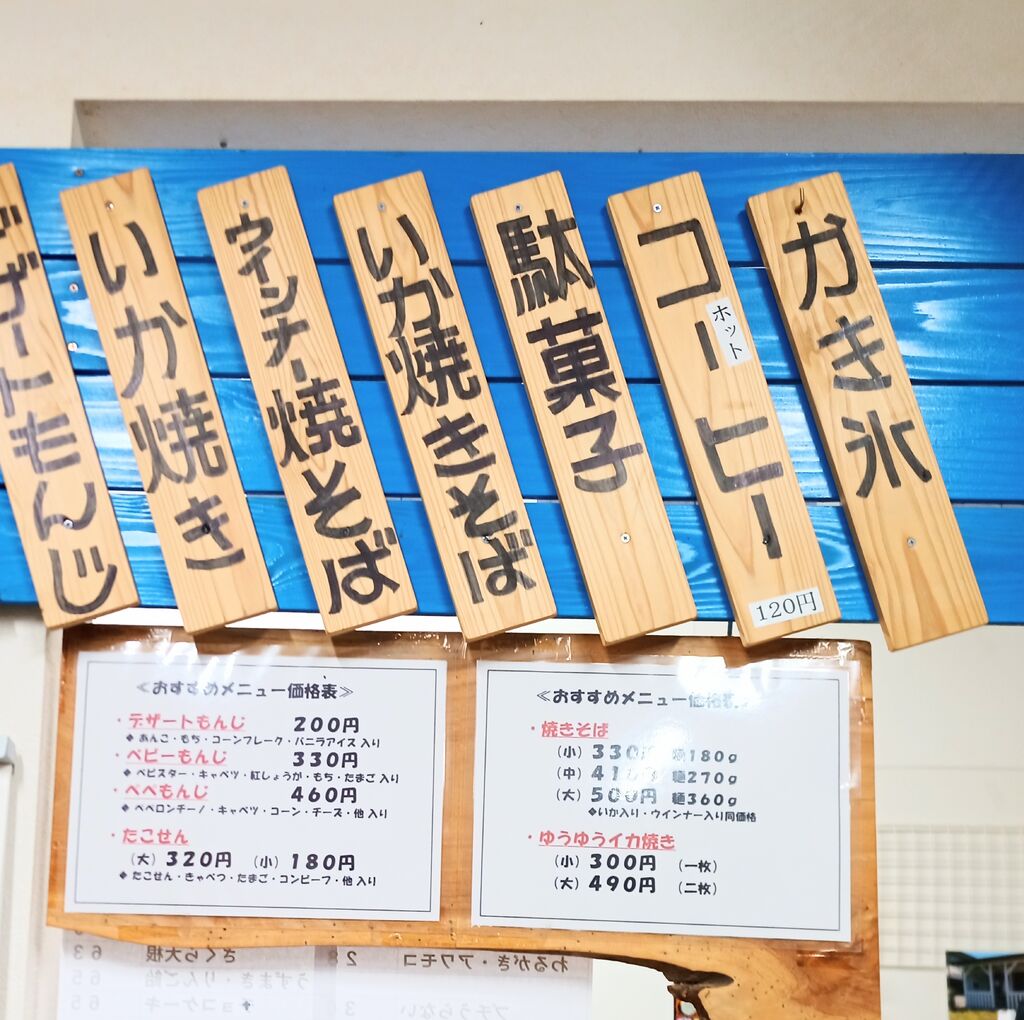 デザートもんじ
いか焼き
ウインナー焼そば
いか焼きそば
駄菓子
コーヒー
ホット
120円
かき氷
≪おすすめメニュー価格表≫
・デザートもんじ 200円
◆あんこ・もち・コーンフレーク・バニラアイス 入り
・ベビーもんじ 330円
◆ベビスター・キャベツ・紅しょうが・もち・たまご 入り
・ペペもんじ 460円
◆ペペロンチーノ・キャベツ・コーン・チーズ・他 入り
・たこせん
(大) 320円 (小) 180円
◆たこせん・きゃべつ・たまご・コンビーフ・他 入り
≪おすすめメニュー価格表≫
・焼きそば
(小) 330円 麺180g
(中) 41 麺270g
(大) 500円 麺360g
◆いか入り・ウインナー入り同価格
・ゆうゆうイカ焼き
(小) 300円 (一枚)
(大) 490円 (二枚)
さくら大根 63
うずまき・りんご飴 65
チョコケーキ 65
わるがき・アワモコ
プチうらない